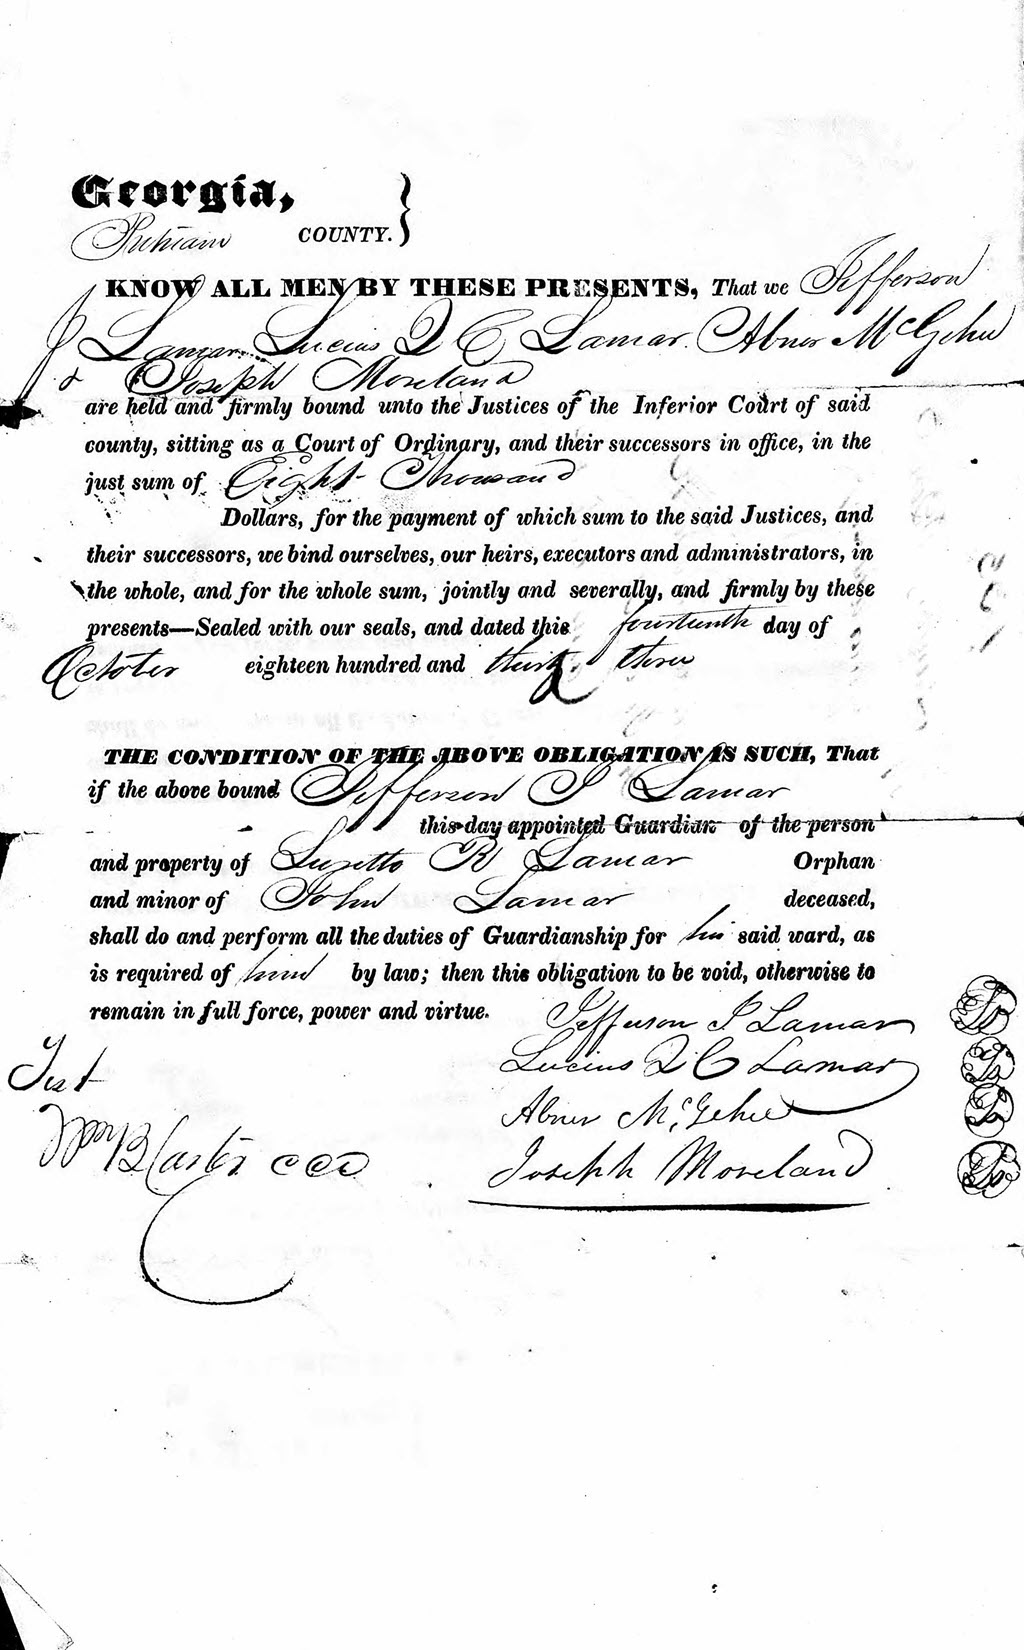 Georgia,
Putnam COUNTY.
KNOW ALL MEN BY THESE PRESENTS, That we Jefferson
J Lamar, Lucius Q C Lamar, Abner McGehee
& Joseph Moreland
are held and firmly bound unto the Justices of the Inferior Court of said
county, sitting as a Court of Ordinary, and their successors in office, in the
just sum of Eight Thousand
Dollars, for the payment of which sum to the said Justices, and
their successors, we bind ourselves, our heirs, executors and administrators, in
the whole, and for the whole sum, jointly and severally, and firmly by these
presents—Sealed with our seals, and dated this fourteenth day of
October eighteen hundred and thirty three
THE CONDITION OF THE ABOVE OBLIGATION IS SUCH, That
if the above bound Jefferson J Lamar
this day appointed Guardian of the person
and property of R Lamar Orphan
and minor of John Lamar deceased,
shall do and perform all the duties of Guardianship for his said ward, as
is required of him by law; then this obligation to be void, otherwise to
remain in full force, power and virtue.
Jefferson J Lamar
Lucius Q C Lamar
Test
Abner McGehee
Wm B Carter CCO
Joseph Moreland